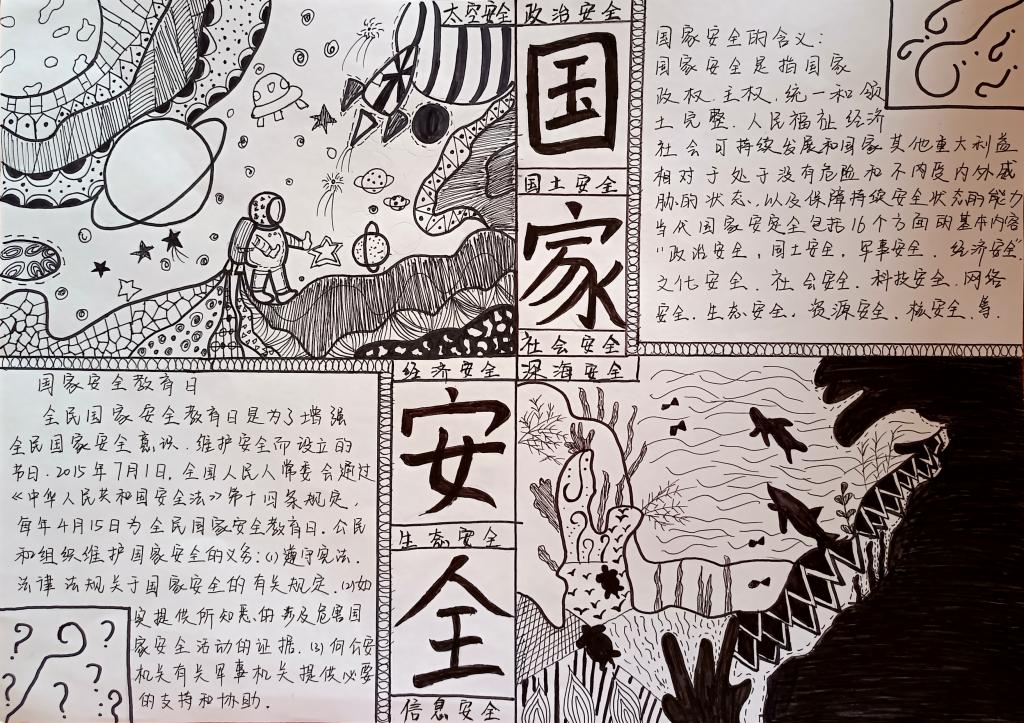 太空安全
政治安全
国
国土安全
家
社会安全
深海安全
经济安全
安
生态安全
全
信息安全
国家安全的含义：
国家安全是指国家
政权、主权、统一和领
土完整、人民福祉经济
社会可持续发展和国家其他重大利益
相对于处于没有危险和不内受内外威
胁的状态、以及保障持续安全状态的能力
当代国家安安全包括16个方面的基本内容
"政治安全，国土安全，军事安全、经济安全"
文化安全、社会安全、科技安全、网络
安全、生态安全、资源安全、核安全、等、
国家安全教育日
全民国家安全教育日是为了增强
全民国家安全意识、维护安全而设立的
节日、2015年7月1日，全国人民人常委会通过
《中华人民共和国安全法》第十四条规定，
每年4月15日为全民国家安全教育日、公民
和组织维护国家安全的义务：(1)遵守宪法、
法律法规关于国家安全的有关规定、(2)如
实提供所知悉的涉及危害国
家安全活动的证据、(3)向公安
机关有关军事机关提供必要
的支持和协助。